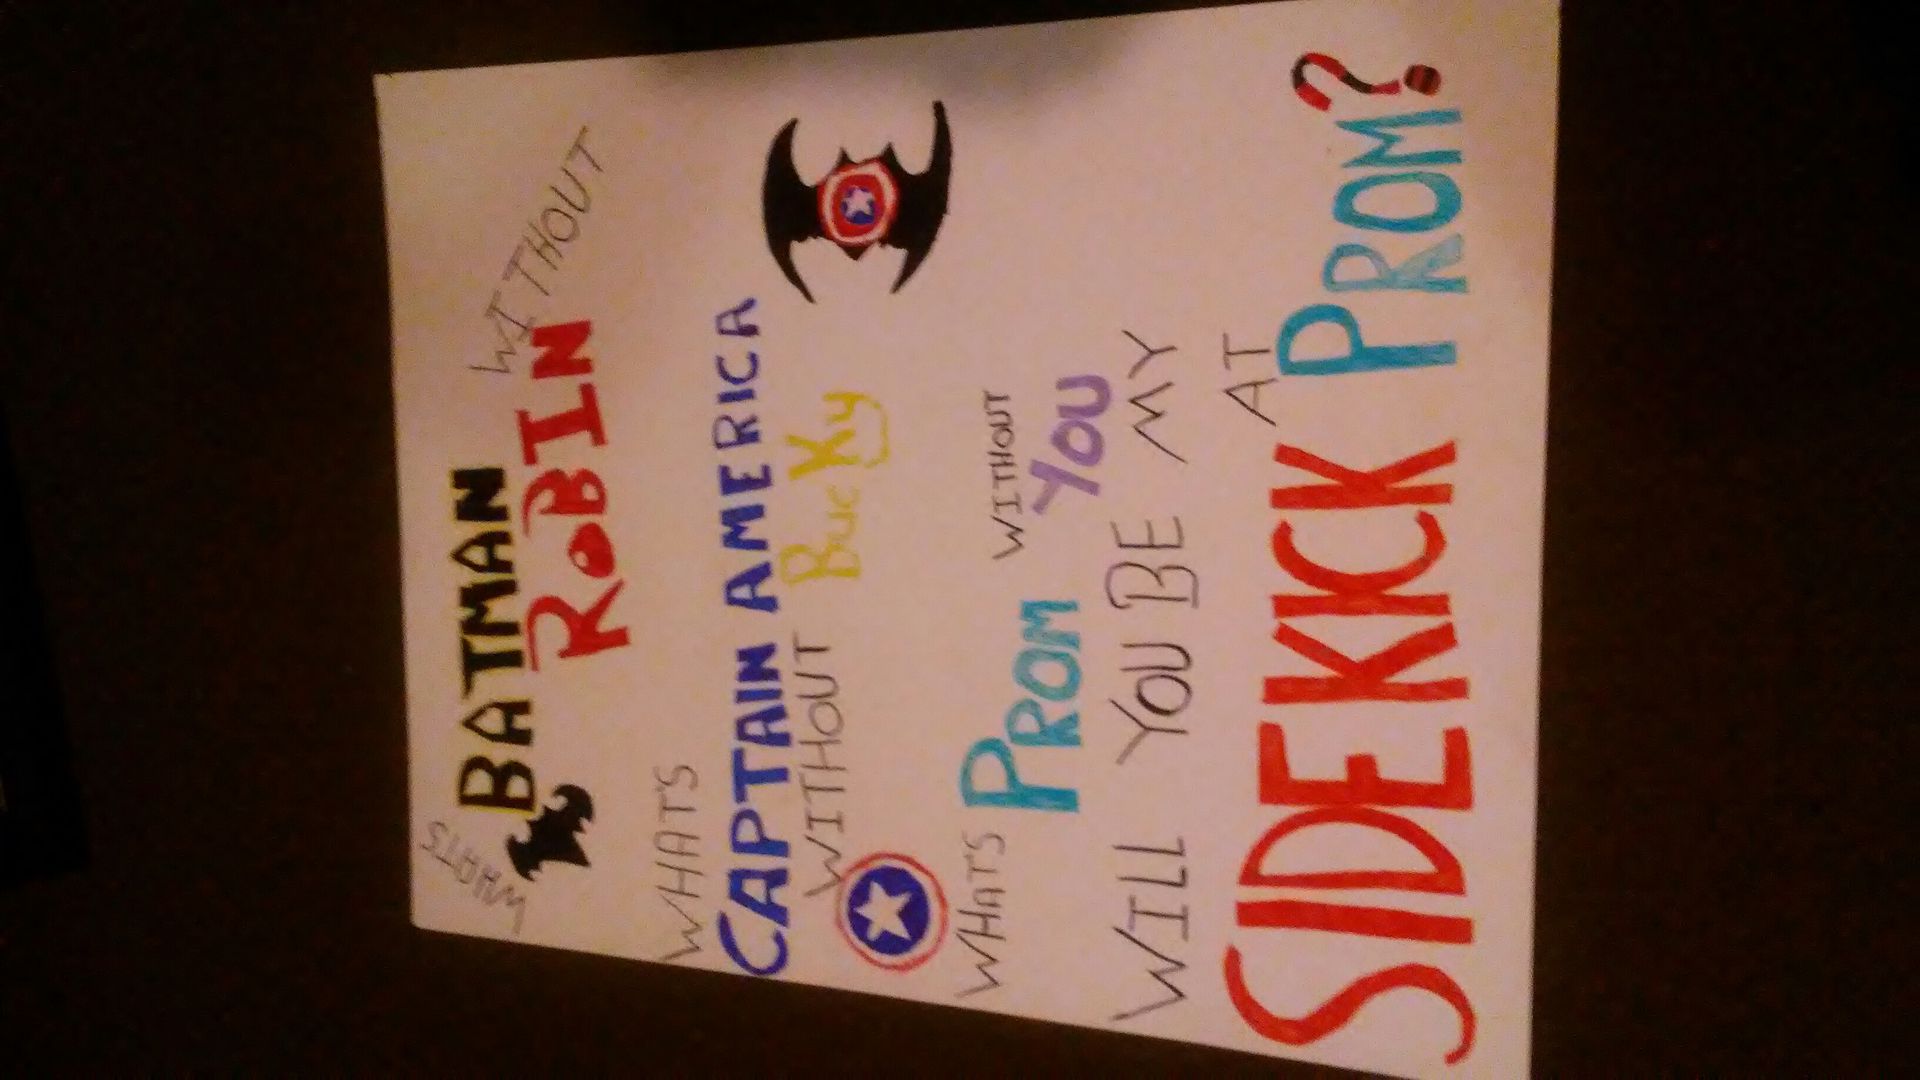 WHAT'S BATMAN WITHOUT
ROBIN
WHAT'S
CAPTAIN AMERICA
WITHOUT BUCKY
WHAT'S PROM WITHOUT
YOU
WILL YOU BE MY
SIDEKICK AT PROM?